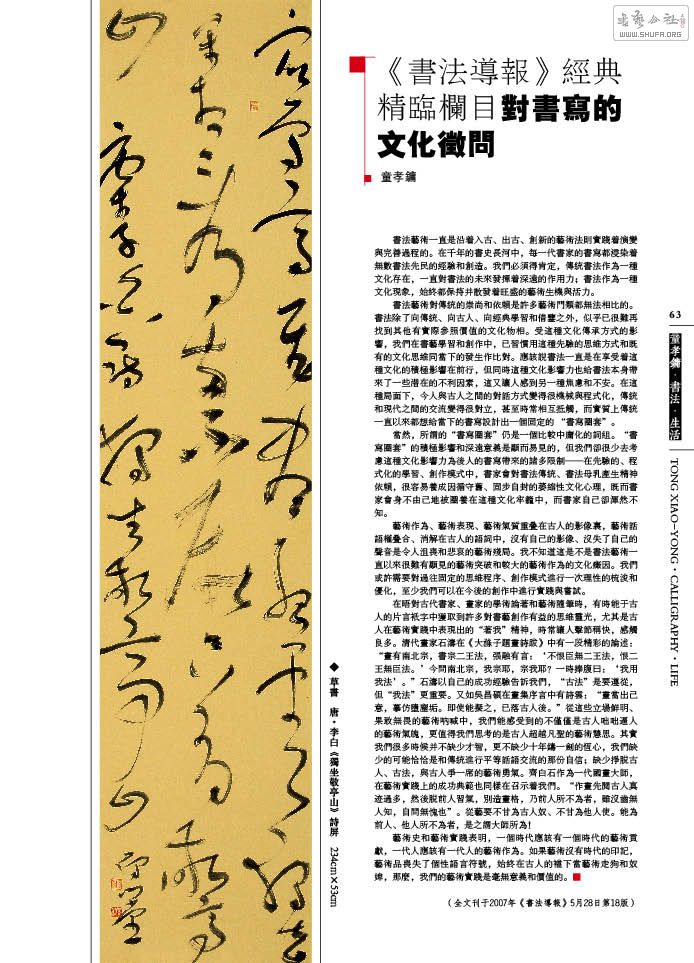 書藝公社
WWW.SHUFA.ORG
《書法導報》經典
精臨欄目對書寫的
文化徵問
童孝鏞
書法藝術一直是沿着入古、出古、創新的藝術法則實踐着演變
與完善過程的。在千年的書史長河中，每一代書家的書寫都浸染着
無數書法先民的經驗和創造。我們必須得肯定，傳統書法作為一種
文化存在，一直對書法的未來發揮着深遠的作用力；書法作為一種
文化現象，始終都保持并散發着旺盛的藝術生機與活力。
書法藝術對傳統的崇尚和依賴是許多藝術門類都無法相比的。
書法除了向傳統、向古人、向經典學習和借鑒之外，似乎已很難再
找到其他有實際參照價值的文化物相。受這種文化傳承方式的影
響，我們在書藝學習和創作中，已習慣用這種先驗的思維方式和既
有的文化思維同當下的發生作比對。應該說書法一直是在享受着這
種文化的積極影響在前行，但同時這種文化影響力也給書法本身帶
來了一些潛在的不利因素，這又讓人感到另一種焦慮和不安。在這
種局面下，今人與古人之間的對話方式變得很機械與程式化，傳統
和現代之間的交流變得很對立，甚至時常相互抵觸，而實質上傳統
一直以來都想給當下的書寫設計出一個固定的“書寫圈套”。
當然，所謂的“書寫圈套”仍是一個比較中庸化的詞組。“書
寫圈套”的積極影響和深遠意義是顯而易見的，但我們卻很少去考
慮這種文化影響力為後人的書寫帶來的諸多限制——在先驗的、程
式化的學習、創作模式中，書家會對書法傳統、書法母乳產生精神
依賴，很容易養成因循守舊、固步自封的萎縮性文化心理，既而書
家會身不由己地被圈養在這種文化牢籠中，而書家自己卻渾然不
知。
藝術作為、藝術表現、藝術氣質重疊在古人的影像裏，藝術話
語權疊合、消解在古人的語調中，沒有自己的影像、沒失了自己的
聲音是令人沮喪和悲哀的藝術殘局。我不知道這是不是書法藝術一
直以來很難有顯見的藝術突破和較大的藝術作為的文化癥因。我們
或許需要對過往固定的思維程序、創作模式進行一次理性的梳浚和
優化，至少我們可以在今後的創作中進行實踐與嘗試。
在晤對古代書家、畫家的學術論著和藝術隨筆時，有時能于古
人的片言祇字中獲取到許多對書藝創作有益的思維靈光，尤其是古
人在藝術實踐中表現出的“著我”精神，時常讓人擊節稱快，感觸
良多。清代畫家石濤在《大滌子題畫詩跋》中有一段精彩的論述：
“畫有南北宗，書宗二王法，張融有言：‘不恨臣無二王法，恨二
王無臣法。’今問南北宗，我宗耶，宗我耶？一時捧腹曰：‘我用
我法’。”石濤以自己的成功經驗告訴我們，“古法”是要遵從，
但“我法”更重要。又如吳昌碩在畫集序言中有詩雲：“畫當出己
意，摹仿墮塵垢。即使能擬之，已落古人後。”從這些立場鮮明、
果敢無畏的藝術吶喊中，我們能感受到的不僅僅是古人咄咄逼人
的藝術氣魄，更值得我們思考的是古人超越凡聖的藝術慧思。其實
我們很多時候并不缺少才智，更不缺少十年鑄一劍的恆心，我們缺
少的可能恰恰是和傳統進行平等話語交流的那份自信；缺少掙脫古
人、古法，與古人爭一席的藝術勇氣。齊白石作為一代國畫大師，
在藝術實踐上的成功典範也同樣在召示着我們。“作畫先閱古人真
迹過多，然後脫前人習氣，別造畫格，乃前人所不為者，雖沒齒無
人知，自問無愧也”。從藝要不甘為古人奴、不甘為他人使。能為
前人、他人所不為者，是之謂大師所為！
藝術史和藝術實踐表明，一個時代應該有一個時代的藝術貢
獻，一代人應該有一代人的藝術作為。如果藝術沒有時代的印記，
藝術品喪失了個性語言符號，始終在古人的襠下當藝術走狗和奴
婢，那麼，我們的藝術實踐是毫無意義和價值的。
（全文刊于2007年《書法導報》5月28日第18版）
◆草書 唐·李白《獨坐敬亭山》詩屏 234cm×53cm
63
童孝鏞·書法·生活
TONG XIAO-YONG·CALLIGRAPHY·LIFE